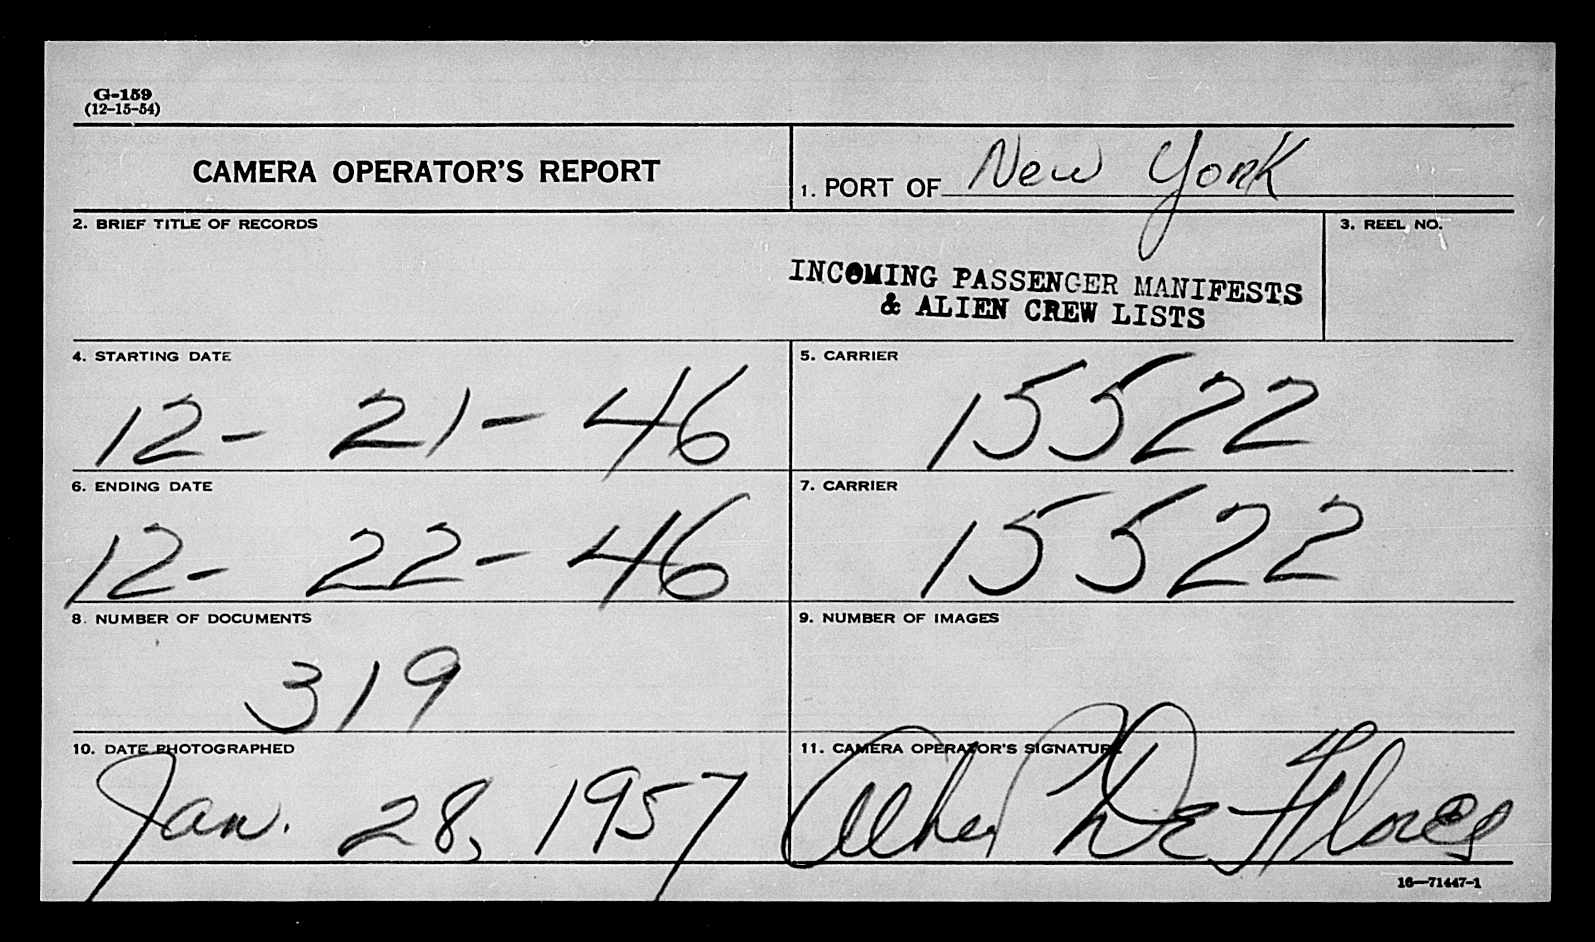 G-159
(12-15-54)
CAMERA OPERATOR'S REPORT
1. PORT OF New York
2. BRIEF TITLE OF RECORDS
INCOMING PASSENGER MANIFESTS
& ALIEN CREW LISTS
3. REEL NO.
4. STARTING DATE
12- 21- 46
5. CARRIER
15522
6. ENDING DATE
12- 22- 46
7. CARRIER
15522
8. NUMBER OF DOCUMENTS
319
9. NUMBER OF IMAGES
10. DATE PHOTOGRAPHED
Jan. 28, 1957
11. CAMERA OPERATOR'S SIGNATURE
De Flores
16—71447-1